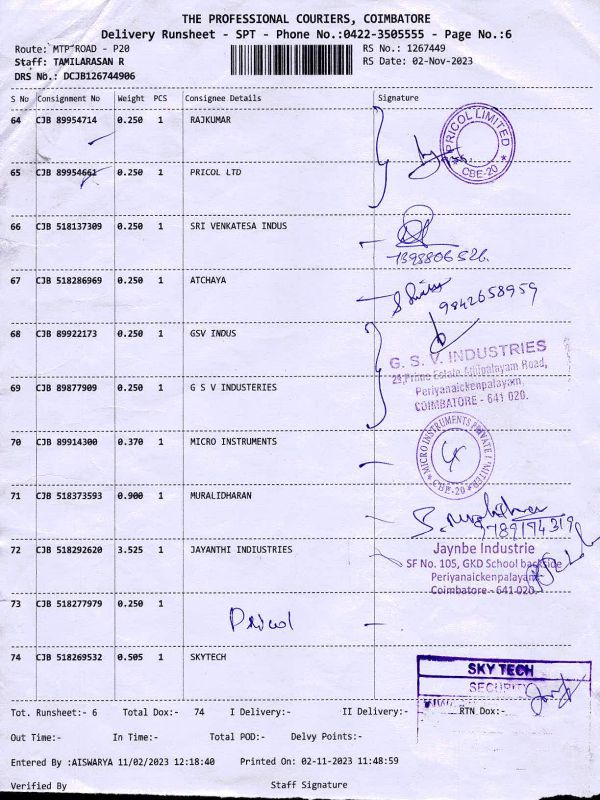 THE PROFESSIONAL COURIERS, COIMBATORE
Delivery Runsheet - SPT - Phone No.:0422-3505555 - Page No.:6
Route: MTP ROAD - P20
RS No.: 1267449
Staff: TAMILARASAN R
RS Date: 02-Nov-2023
DRS No.: DCJB126744906
S No Consignment No Weight PCS Consignee Details Signature
64 CJB 89954714 0.250 1 RAJKUMAR
PRICOL LIMITED
CBE-20
65 CJB 89954661 0.250 1 PRICOL LTD
66 CJB 518137309 0.250 1 SRI VENKATESA INDUS
7398806526
67 CJB 518286969 0.250 1 ATCHAYA
9842658959
68 CJB 89922173 0.250 1 GSV INDUS
G. S. V. INDUSTRIES
Periyanaickenpalayam,
COIMBATORE - 641 020.
69 CJB 89877909 0.250 1 G S V INDUSTERIES
70 CJB 89914300 0.370 1 MICRO INSTRUMENTS
MICRO INSTRUMENTS PRIVATE LIMITED
CBE-20
71 CJB 518373593 0.900 1 MURALIDHARAN
72 CJB 518292620 3.525 1 JAYANTHI INDIUSTRIES
Jaynbe Industrie
SF No. 105, GKD School backside
Periyanaickenpalayam
Coimbatore - 641 020.
73 CJB 518277979 0.250 1
Pricol
74 CJB 518269532 0.505 1 SKYTECH
SKY TECH
SECURITY
Tot. Runsheet:- 6 Total Dox:- 74 I Delivery:- II Delivery:- RTN Dox:-
Out Time:- In Time:- Total POD:- Delvy Points:-
Entered By :AISWARYA 11/02/2023 12:18:40 Printed On: 02-11-2023 11:48:59
Verified By Staff Signature